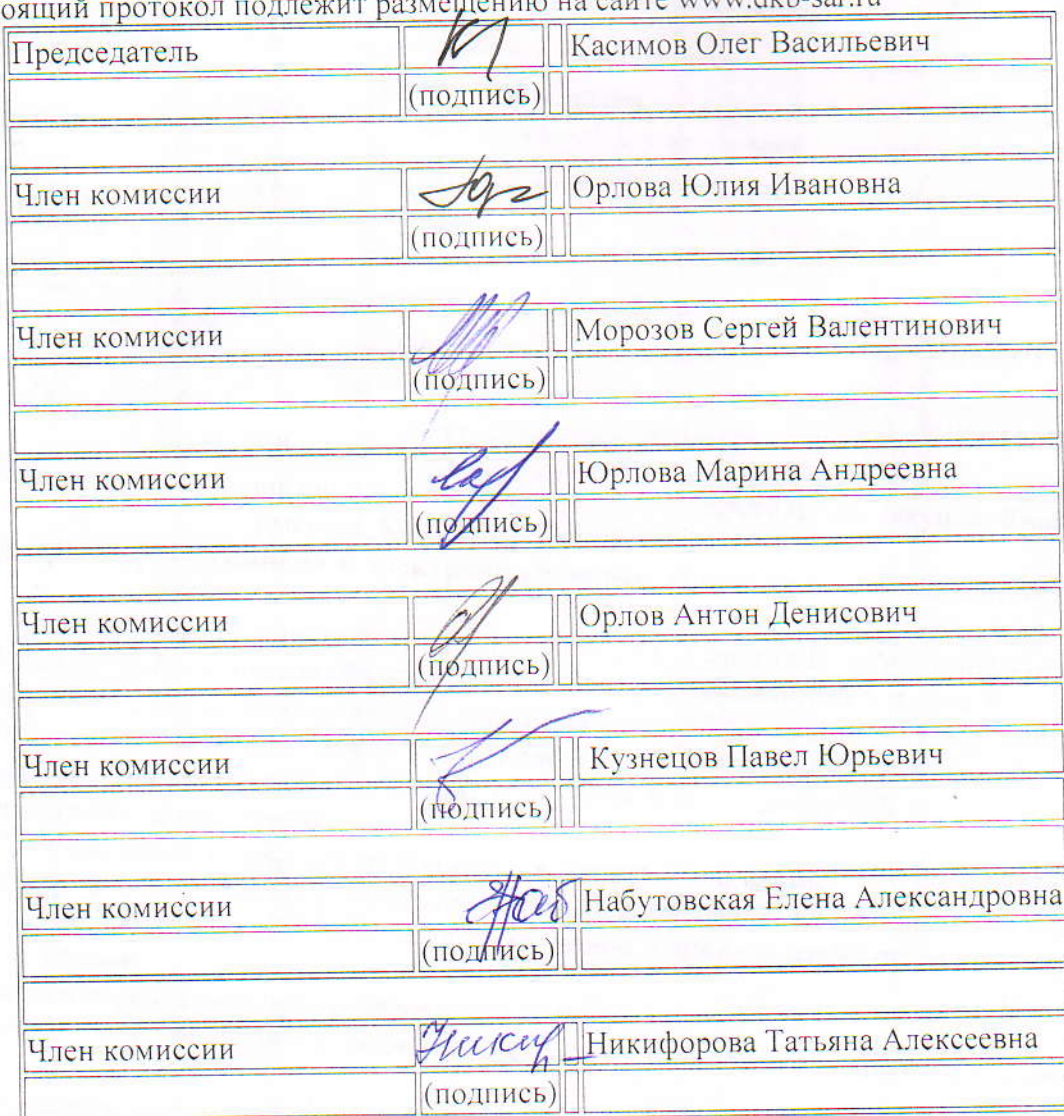 оящий протокол подлежит размещению на сайте www.dkb-sar.ru
Председатель Касимов Олег Васильевич
(подпись)
Член комиссии Орлова Юлия Ивановна
(подпись)
Член комиссии Морозов Сергей Валентинович
(подпись)
Член комиссии Юрлова Марина Андреевна
(подпись)
Член комиссии Орлов Антон Денисович
(подпись)
Член комиссии Кузнецов Павел Юрьевич
(подпись)
Член комиссии Набутовская Елена Александровна
(подпись)
Член комиссии Никифорова Татьяна Алексеевна
(подпись)